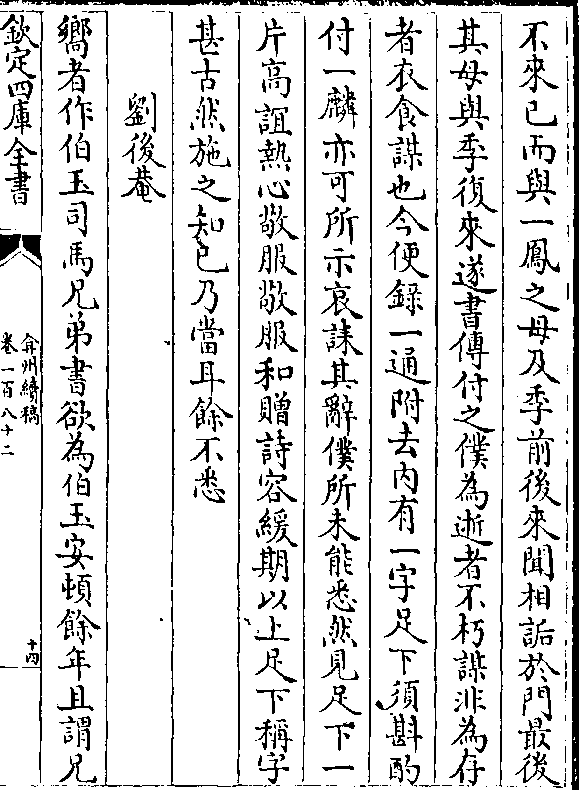 不來已而與一鳳之母及季前後來聞相詬於門最後
其母與季復來遂書傳付之僕為逝者不朽謀非為存
者衣食謀也今便錄一通附去内有一字足下須斟酌
付一麟亦可所示哀誄其辭僕所未能悉然見足下一
片高誼熱心敬服敬服和贈詩容緩期以上足下稱字
甚古然施之知已乃當耳餘不悉
劉後菴
嚮者作伯玉司馬兄弟書欲為伯玉安頓餘年且謂兄
欽定四庫全書
弇州續稿
卷一百八十二
十四